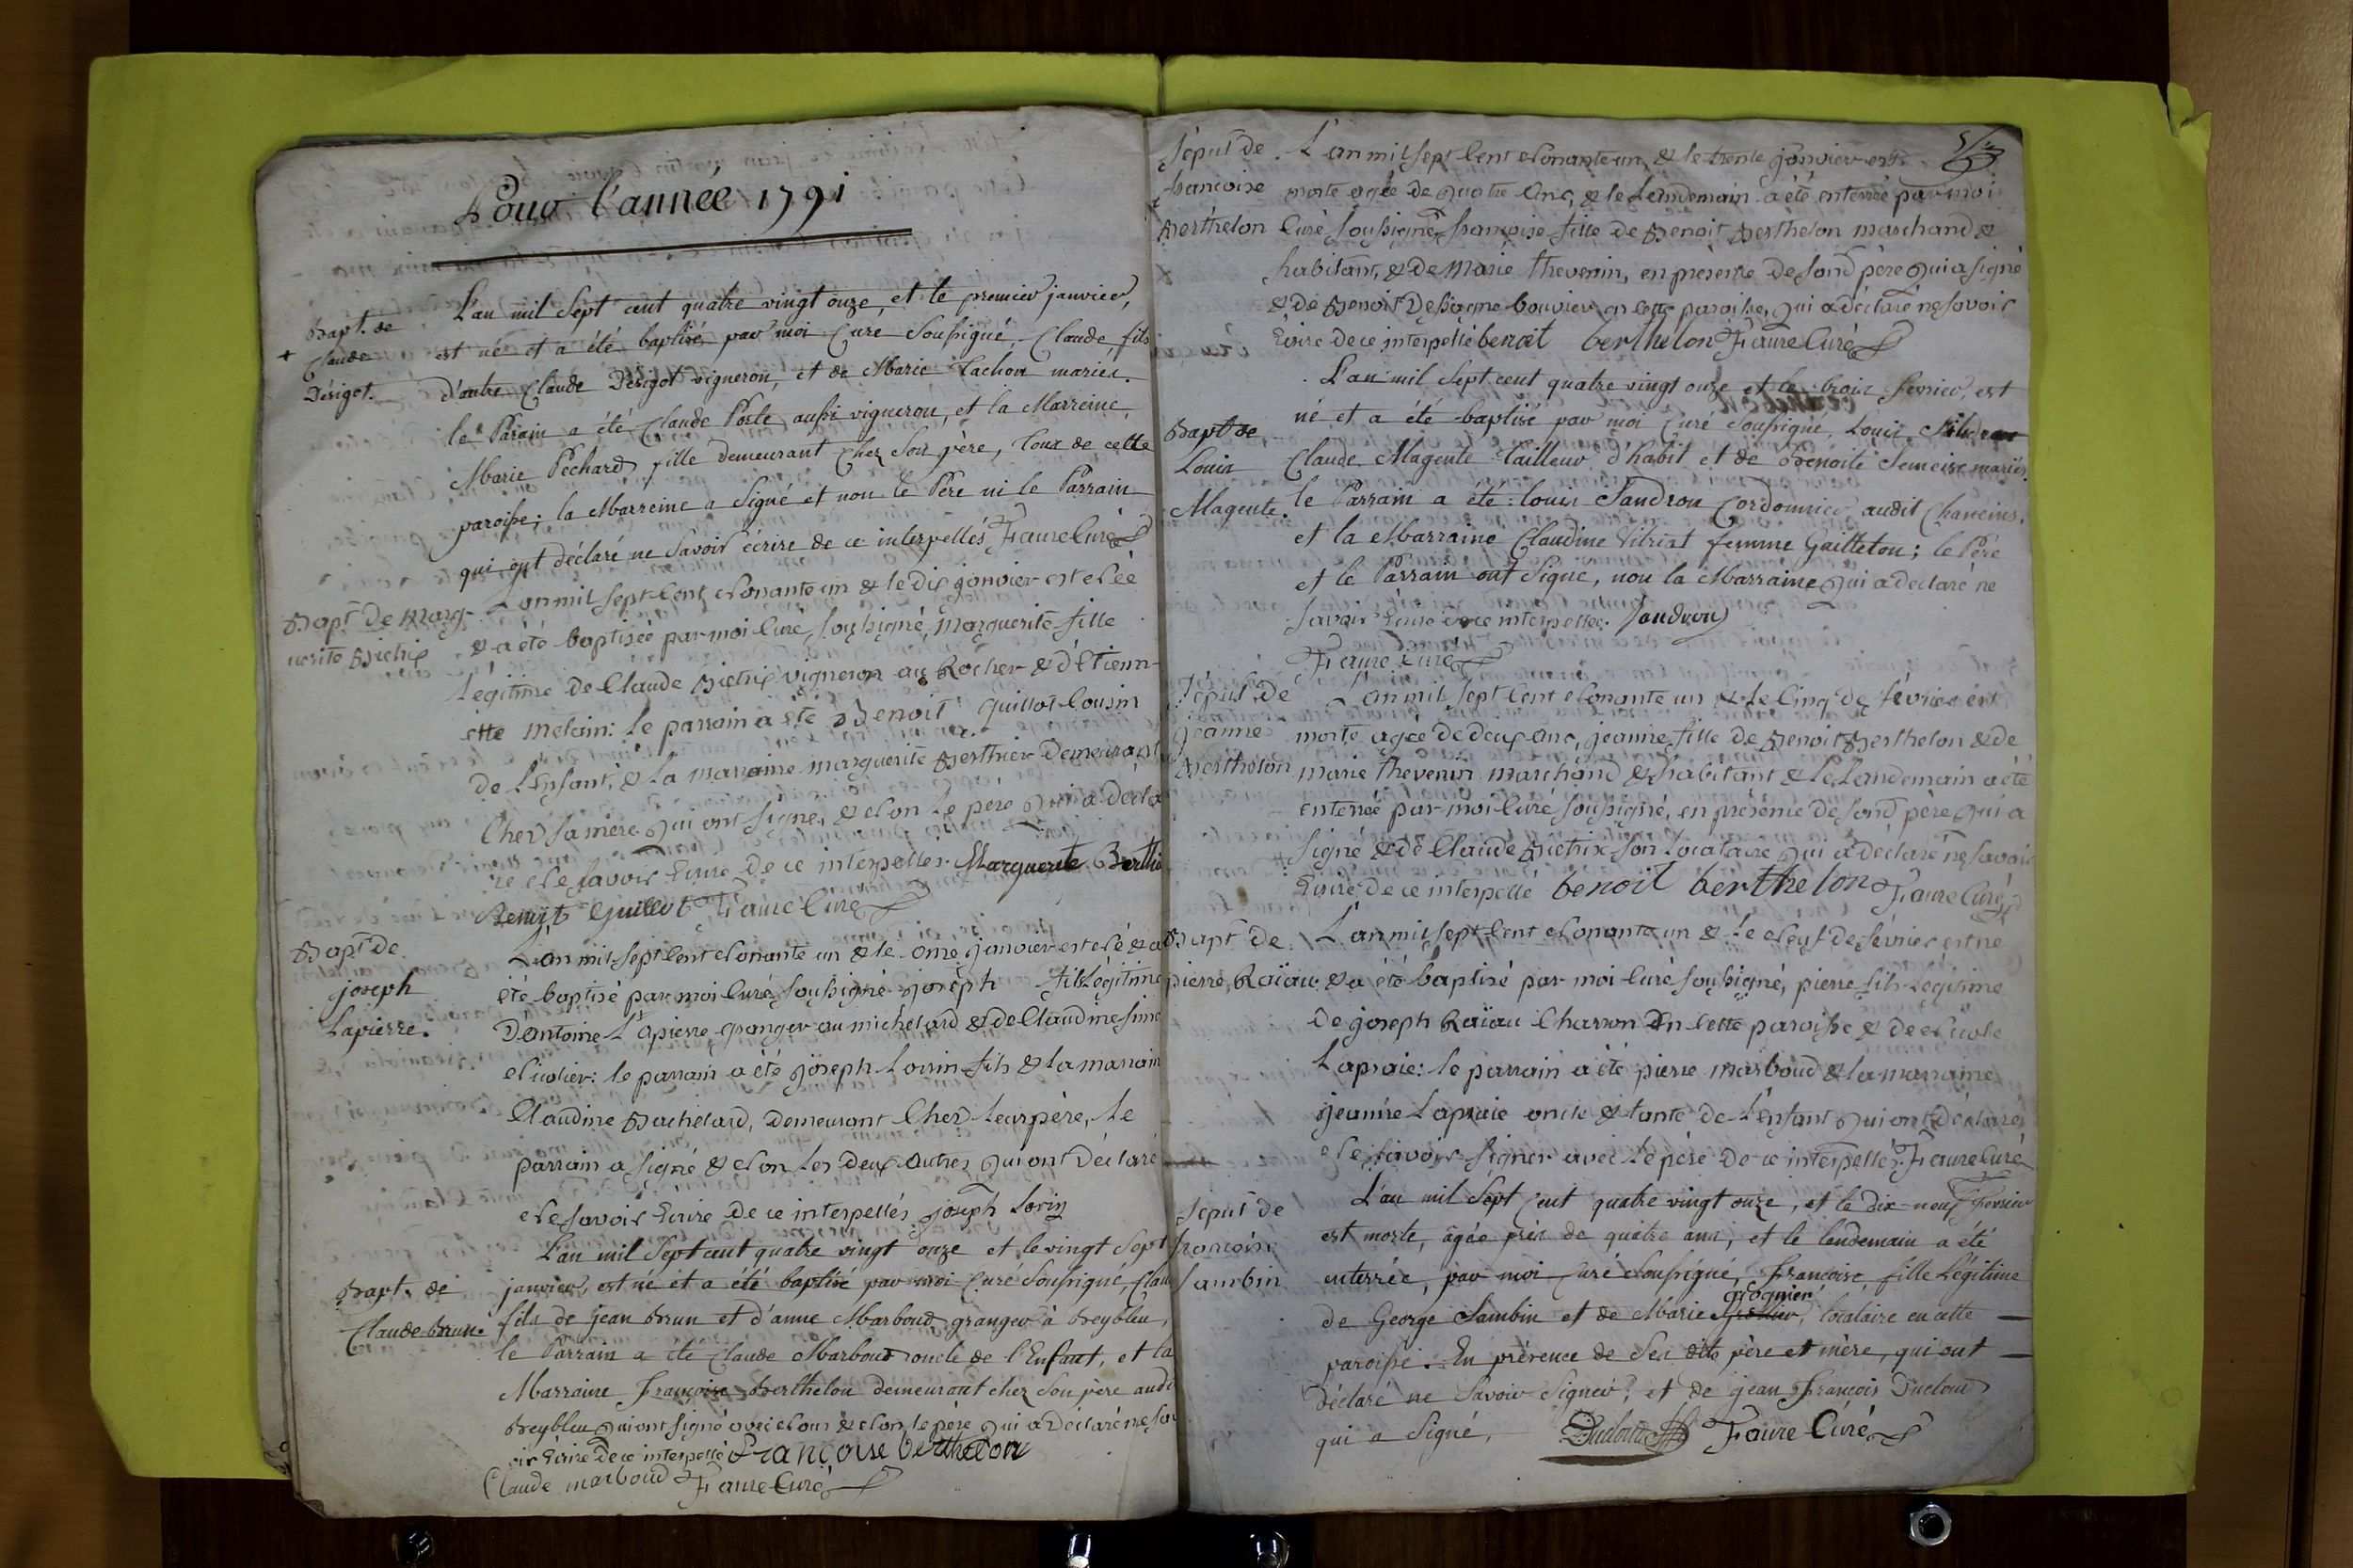 Pour l'année 1791
Bapt. de
Claude
Dérigot.
L'an mil sept cent quatre vingt onze, et le premier janvier,
est né et a été baptisé par moi Curé Soussigné, Claude, fils
d'autre Claude Dérigot vigneron, et de Marie Lachon mariés.
le Parain a été Claude Poste aussi vigneron, et la Marreine,
Marie Péchard fille demeurant chez Son père, tous de cette
paroisse; la Marreine a Signé et non le Père ni le Parrain
qui ont déclaré ne Savoir écrire de ce interpellés Faure Curé
Bapt de marg-
uerite Dietrix
L'an mil sept Cent Nonante un & le Dix janvier est Née
& a été baptisée par moi Curé, soussigné, Marguerite fille
Légitime de Claude Dietrix vigneron au Rocher & d'Etienn-
ette melain: le parrain a été Benoit Guillot Cousin
de l'Enfant, & la marraine marguerite Berthier Demeurant
Chez sa mère qui ont signé, & Non le père qui a décla
ré Ne savoir Ecrire de ce interpellés. Marguerite Berthie
Benoît Guillot Faure Curé
Bapt de
joseph
Lapierre.
L'an mil sept Cent Nonante un & le onze janvier est Né & a
été baptisé par moi Curé, soussigné joseph fils Légitime
D'antoine Lapierre granger au michelard & de Claudine Sime
Nicolier: le parrain a été joseph Lorin fils & la marrain
Claudine Bachelard, Demeurant Chez Leur père, Le
parrain a signé & Non Les Deux autres qui ont Déclaré
Ne savoir Ecrire De ce interpellés joseph lorin
Bapt. de
Claude Brun.
L'an mil Sept cent quatre vingt onze et le vingt Sept
janvier, est né et a été baptisé par moi Curé Soussigné, Clau
fils de jean Brun et d'anne Marboud granger à Breybleu,
le Parrain a été Claude Marboud oncle de l'Enfant, et la
Marraine Françoise Berthelon demeurant chez Son père audi
Breybleu qui ont signé avec Nous & Non le père qui a Déclaré ne sav
oir Ecrire De ce interpellé Françoise berthelon
Claude marboud Faure Curé
Sépult de
françoise
Berthelon
L'an mil sept Cent Nonante un & le trente janvier est
morte agée de quatre ans, & le Lendemain a été enterrée par moi
Curé soussigné françoise fille de Benoit Berthelon marchand &
habitant, & de marie thevenin, en présence de sond père qui a signé
& de Benoit Dessagne bouvier en cette paroisse, qui a déclaré ne savoir
Ecrire de ce interpellé benoit berthelon Faure Curé
Bapt de
Louis
Magente.
L'an mil Sept cent quatre vingt onze et le trois Fevrier, est
né et a été baptisé par moi Curé Soussigné, Louis, fils
Claude Magente Tailleur d'habit et de Benoite Semeise mariés.
le Parrain a été: louis Sandron Cordonnier audit Chareins,
et la Marraine Claudine Vitriat femme Guilleton; le Père
et le Parrain ont Signé, non la Marraine qui a declaré ne
savoir Ecrire de ce interpellée. Sandron
Faure Curé
Sépult de
jeanne
Berthelon
L'an mil sept Cent Nonante un & le Cinq de février est
morte agée de deux ans, jeanne fille de Benoit Berthelon & de
marie thevenin marchand & habitant & le Landemain a été
enterrée par moi Curé soussigné, en présence de sond père qui a
signé & de Claude Dietrix son Locataire qui a déclaré ne savoir
Ecrire de ce interpellé benoit berthelon Faure Curé
Bapt de
pierre Raïau
L'an mil sept Cent Nonante un & le Neuf de février est né
& a été baptisé par moi Curé soussigné, pierre fils Légitime
de joseph Raïau Charron En Cette paroisse & de Nicole
Lapraie: le parrain a été pierre marboud & la marraine
jeanne Lapraie oncle & tante de l'Enfant qui ont déclaré
Ne savoir signer avec Le père de ce interpellés. Faure Curé
Sépult de
françoise
Sambin
L'an mil Sept Cent quatre vingt onze, et le dix-neuf Fevrier
est morte, âgée près de quatre ans, et le lendemain a été
enterrée, par moi Curé Soussigné, Françoise fille Légitime
grognier
de George Sambin et de Marie, locataire en cette
paroisse. En présence de Ses dits père et mère, qui ont
déclaré ne Savoir Signer, et de jean François Ducloud
qui a Signé, Ducloud Faure Curé